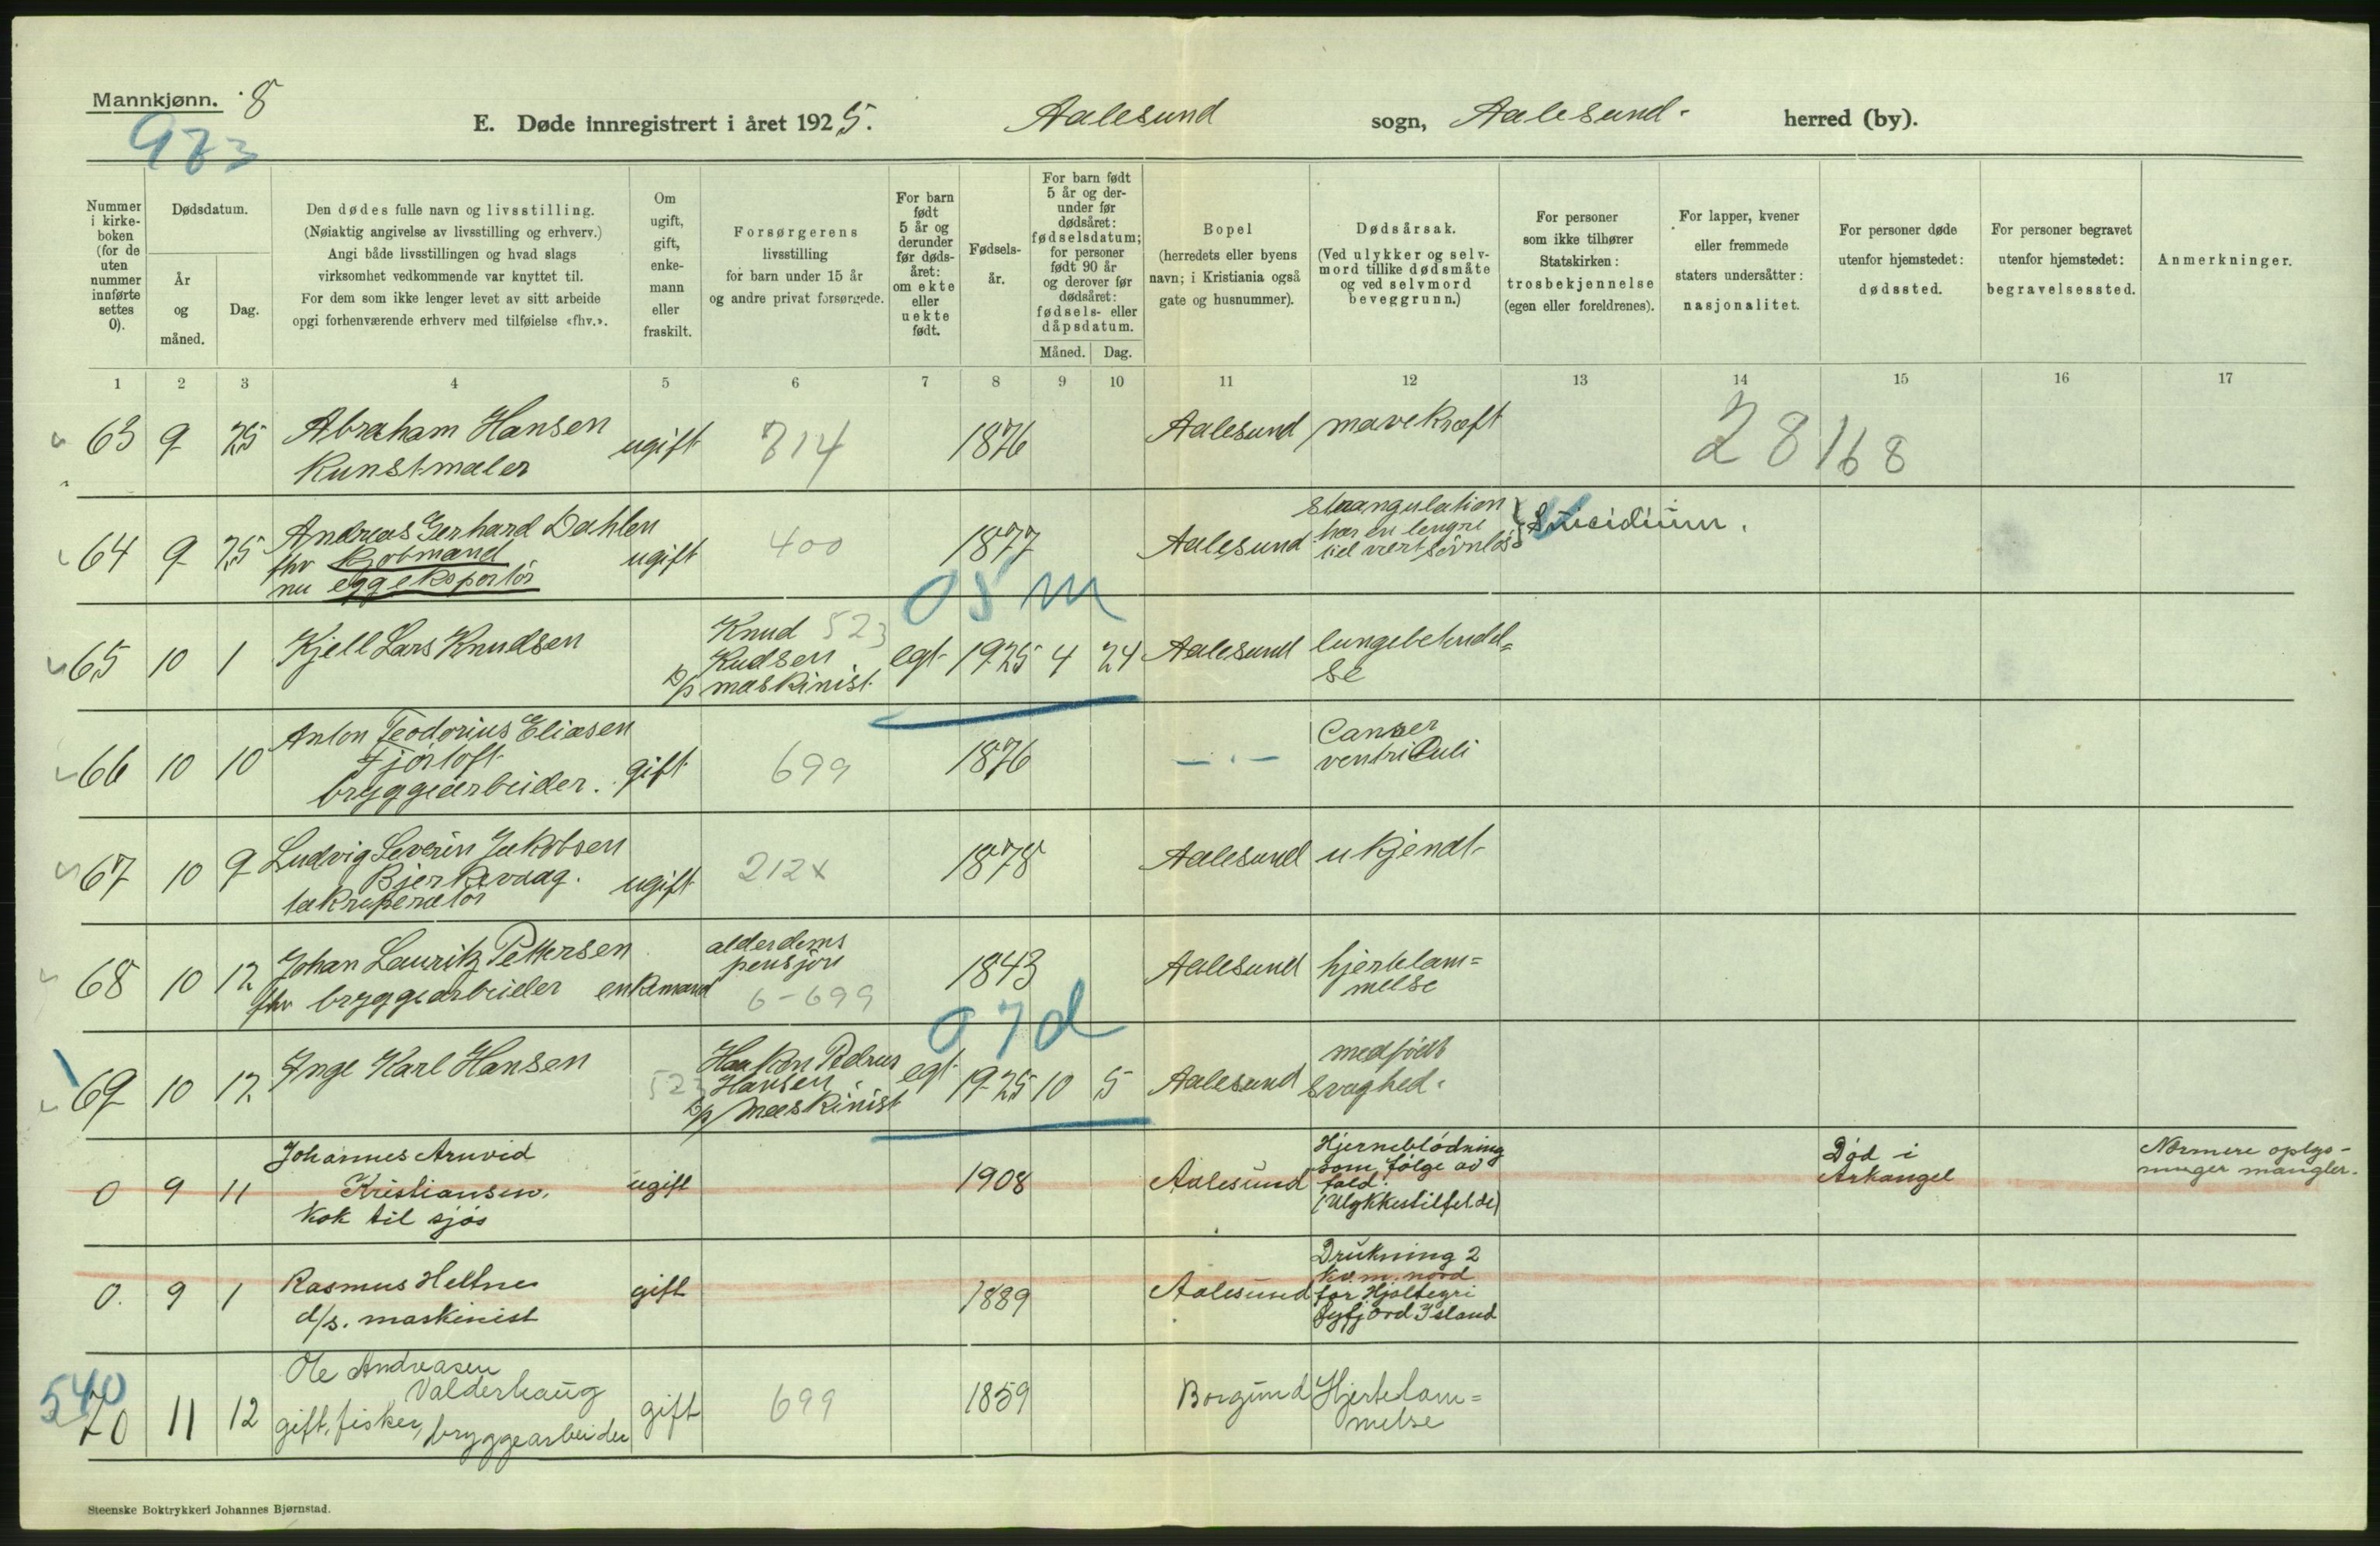 Mannkjønn. 8
973
E. Døde innregistrert i året 1925. Aalesund sogn, Aalesund herred (by).
Nummer i kirkeboken (for de uten nummer innførte settes 0).
Dødsdatum.
År og måned.
Dag.
Den dødes fulle navn og livsstilling.
(Nøiaktig angivelse av livsstilling og erhverv.)
Angi både livsstillingen og hvad slags
virksomhet vedkommende var knyttet til.
For dem som ikke lenger levet av sitt arbeide
opgi forhenværende erhverv med tilføielse «fhv.».
Om ugift, gift, enkemann eller fraskilt.
Forsørgerens
livsstilling
for barn under 15 år
og andre privat forsørgede.
For barn født 5 år og derunder før dødsåret: om ekte eller uekte født.
Fødselsår.
For barn født 5 år og derunder før dødsåret: fødselsdatum; for personer født 90 år og derover før dødsåret: fødsels- eller dåpsdatum.
Måned. Dag.
Bopel
(herredets eller byens
navn; i Kristiania også
gate og husnummer).
Dødsårsak.
(Ved ulykker og selvmord tillike dødsmåte
og ved selvmord
beveggrunn.)
For personer
som ikke tilhører
Statskirken:
trosbekjennelse
(egen eller foreldrenes).
For lapper, kvener
eller fremmede
staters undersåtter:
nasjonalitet.
For personer døde
utenfor hjemstedet:
dødssted.
For personer begravet
utenfor hjemstedet:
begravelsessted.
Anmerkninger.
1 2 3 4 5 6 7 8 9 10 11 12 13 14 15 16 17
63 9 25 Abraham Hansen ugift 714 1876 Aalesund mavekræft 28168
Kunstmaler
64 9 25 Andreas Gerhard Dahlen ugift 400 1877 Aalesund Strangulation Suicidium.
fhv Kjøbmand har en lengre
nu eggeksportör tid vært sövnlös
05 m
65 10 1 Kjell Lars Knudsen Knud 523 egt 1925 4 24 Aalesund lungebetendel=
Kudsen se
D/p maskinist
66 10 10 Anton Teodorius Eliasen gift 699 1876 — " — Canser
Fjörtoft ventriculi
bryggearbeider.
67 10 9 Ludvig Severin Jakobsen ugift 212x 1878 Aalesund ukjendt
Bjerkevaag.
takreperatör
68 10 12 Johan Lauritz Pettersen enkemand alderdoms 1843 Aalesund hjertelam=
fhv bryggearbeider pensjon melse
6-699
07d
69 10 12 Inge Karl Hansen 523 Haakon Pedrus egt 1925 10 5 Aalesund medfödt
Hansen svaghed.
D/p Maskinist
0 9 11 Johannes Arnvid ugift 1908 Aalesund Hjerneblödning Död i Nærmere oplys-
Kristiansen. som følge av Arkangel ninger mangler.
Kok til sjøs fald.
(Ulykkestilfelde)
0. 9 1 Rasmus Heltne gift 1889 Aalesund Drukning 2
d/s. maskinist Kv.m. nord
for Hjalteyri
Island
540
70 11 12 Ole Andreasen gift 699 1859 Borgund Hjertelam=
Valderhaug melse
gift, fisker, bryggearbeider
Steenske Boktrykkeri Johannes Bjørnstad.